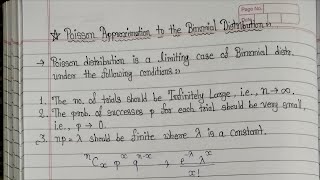 Page No.
Date
☆ Poisson Approximation to the Binomial Distribution :-
→ Poisson distribution is a limiting case of Binomial distr.
under the following conditions :-
1. The no. of trials should be Infinitely Large, i.e., n → ∞.
2. The prob. of successes p for each trial should be very small,
i.e., p → 0.
3. np = λ should be finite where λ is a constant.
ⁿCₓ pˣ qⁿ⁻ˣ → e^-λ λˣ / x!